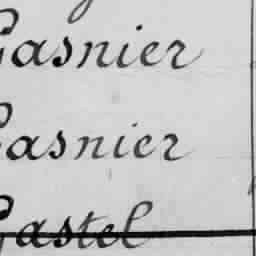 Gasnier
Gasnier
Gastel